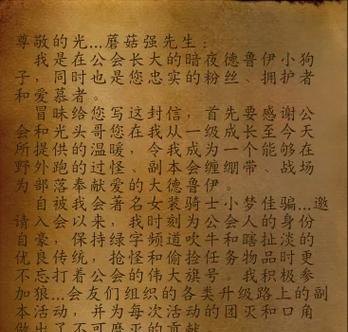 尊敬的光...蘑菇强先生：
我是在公会长大的暗夜德鲁伊小狗
子，同时也是您忠实的粉丝、拥护者
和爱慕者。
冒昧给您写这封信，首先要感谢公
会和光头哥您在我从一级成长至今天
所提供的温暖，令我成为一个能够在
野外跑的过怪、副本会缠绷带、战场
为部落奉献爱的大德鲁伊。
自被我会著名女装骑士小梦佳骗...邀
请入会以来，我时刻为公会人的身份
自豪，保持绿字频道吹牛和瞎扯淡的
优良传统，抢怪和偷捡任务物品时更
不忘打着公会的伟大旗号。我积极参
加狠...会友们组织的各类升级路上的副
本活动，并为每次活动的团灭和口角
做出了不可磨灭的贡献